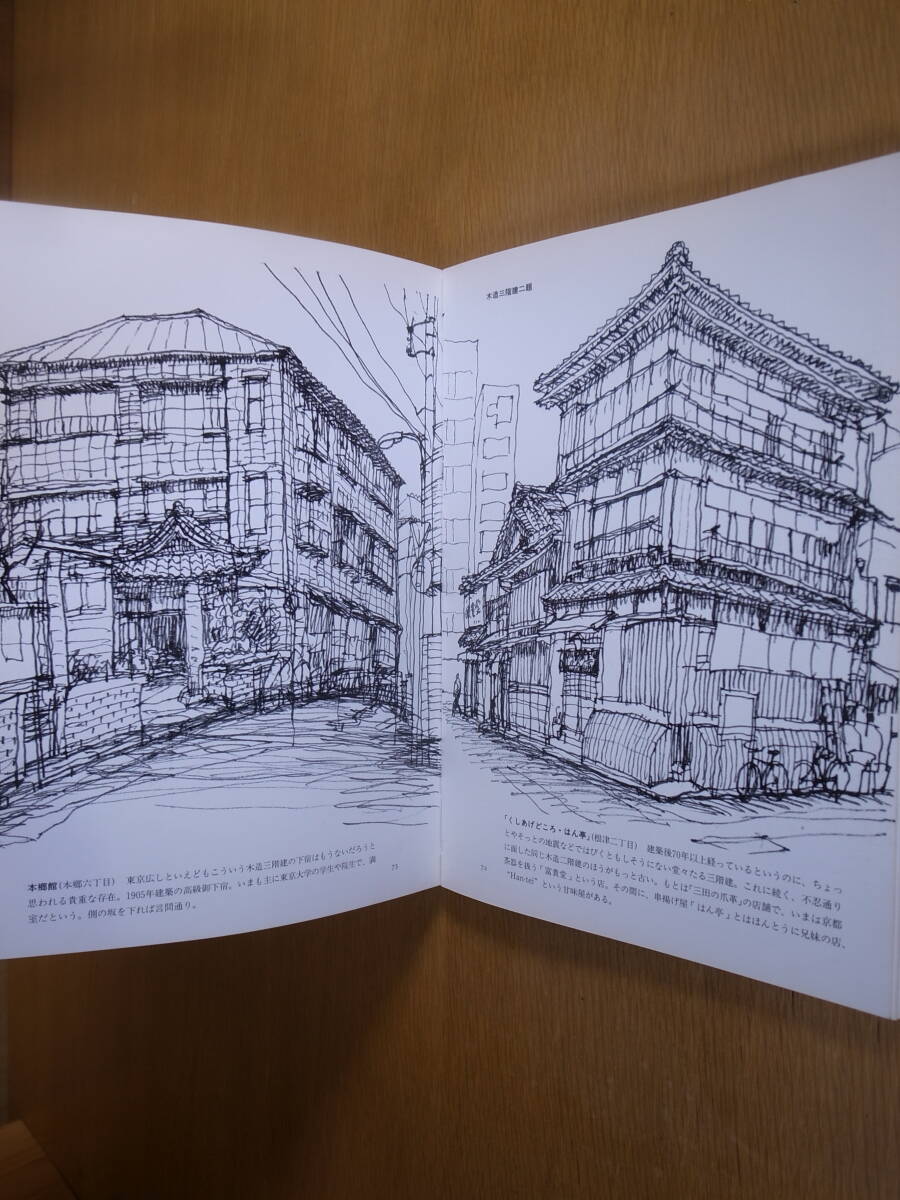 本郷館(本郷六丁目) 東京広しといえどもこういう木造三階建の下宿はもうないだろうと
思われる貴重な存在。1905年建築の高級御下宿。いまも主に東京大学の学生や院生で、満
室だという。側の坂を下れば言問通り。
73
木造三階建二題
74
「くしあげどころ・はん亭」(根津二丁目) 建築後70年以上経っているというのに、ちょっ
とやそっとの地震などではびくともしそうにない堂々たる三階建。これに続く、不忍通り
に面した同じ木造二階建のほうがもっと古い。もとは「三田の爪革」の店舗で、いまは京都
茶器を扱う「富貴堂」という店。その間に、串揚げ屋「はん亭」とはほんとうに兄妹の店、
"Han-tei" という甘味屋がある。